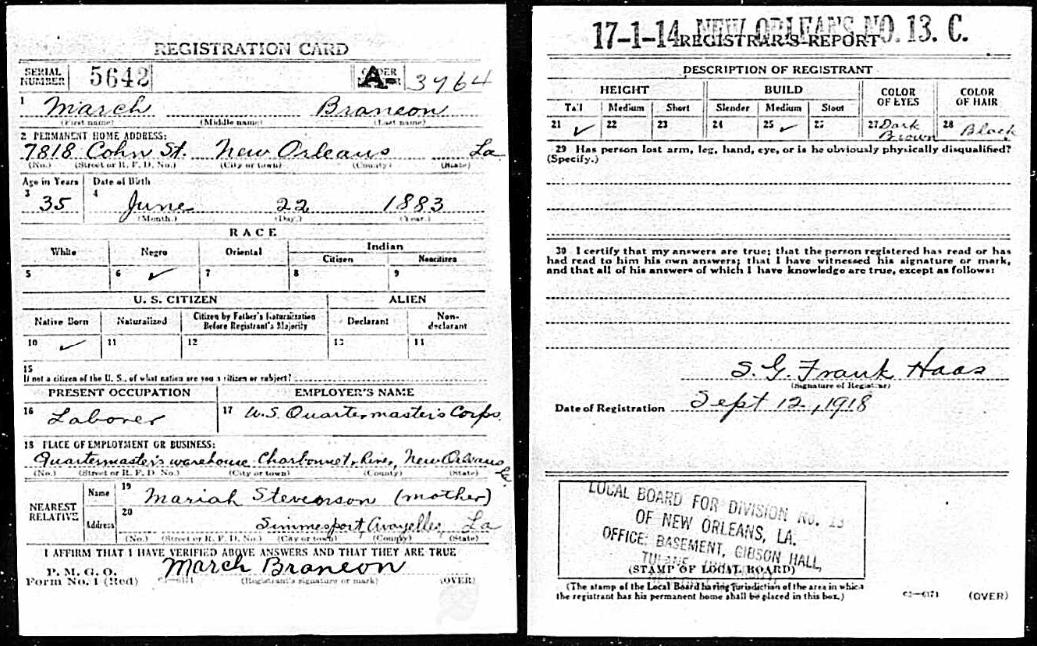 REGISTRATION CARD
SERIAL NUMBER 5642 ORDER NUMBER A-3764
1 March Braneon
(First name) (Middle name) (Last name)
2 PERMANENT HOME ADDRESS:
7818 Cohn St. New Orleans La
(No.) (Street or R. F. D. No.) (City or town) (County) (State)
Age in Years Date of Birth
3 35 4 June 22 1883
(Month.) (Day.) (Year.)
RACE
White Negro Oriental Indian
Citizen Noncitizen
5 6 ✓ 7 8 9
U. S. CITIZEN ALIEN
Native Born Naturalized Citizen by Father's Naturalization Before Registrant's Majority Declarant Non-declarant
10 ✓ 11 12 13 14
15
If not a citizen of the U. S., of what nation are you a citizen or subject?
PRESENT OCCUPATION EMPLOYER'S NAME
16 Laborer 17 U.S. Quartermaster's Corps.
18 PLACE OF EMPLOYMENT OR BUSINESS:
Quartermaster's warehouse Charbonnet & River, New Orleans La.
(No.) (Street or R. F. D. No.) (City or town) (County) (State)
NEAREST RELATIVE Name 19 Mariah Stevenson (mother)
Address 20 Simmesport, Avoyelles, La
(No.) (Street or R. F. D. No.) (City or town) (County) (State)
I AFFIRM THAT I HAVE VERIFIED ABOVE ANSWERS AND THAT THEY ARE TRUE
P. M. G. O.
Form No. 1 (Red) March Braneon
(Registrant's signature or mark) (OVER)
17-1-14 NEW ORLEANS NO. 13. C.
REGISTRAR'S REPORT
DESCRIPTION OF REGISTRANT
HEIGHT BUILD COLOR OF EYES COLOR OF HAIR
Tall Medium Short Slender Medium Stout
21 ✓ 22 23 24 25 ✓ 26 27 Dark Brown 28 Black
29 Has person lost arm, leg, hand, eye, or is he obviously physically disqualified?
(Specify.)
30 I certify that my answers are true; that the person registered has read or has
had read to him his own answers; that I have witnessed his signature or mark,
and that all of his answers of which I have knowledge are true, except as follows:
S. G. Frank Haas
(Signature of Registrar)
Date of Registration Sept 12, 1918
LOCAL BOARD FOR DIVISION NO. 13
OF NEW ORLEANS, LA.
OFFICE: BASEMENT, GIBSON HALL,
TULANE
(STAMP OF LOCAL BOARD)
(The stamp of the Local Board having jurisdiction of the area in which
the registrant has his permanent home shall be placed in this box.)
(OVER)